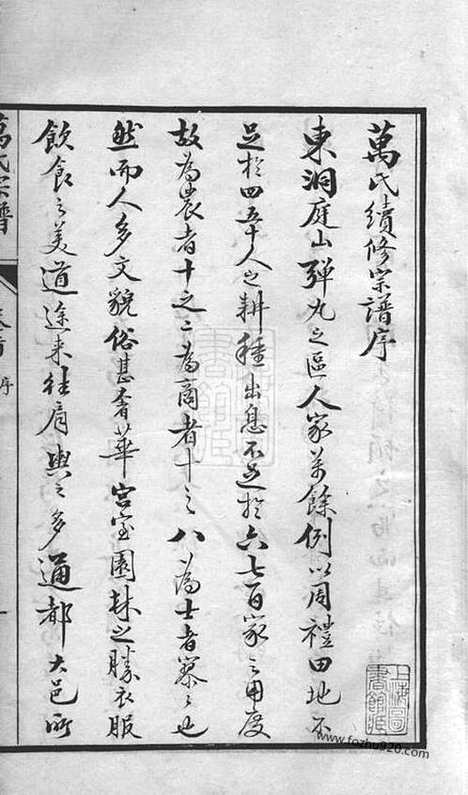 萬氏續修宗譜序
東洞庭山彈丸之區人家萬餘例以周禮田地不
足於四五十人之耕種出息不足於六七百家之用度
故為農者十之二為商者十之八為士者寥寥也
然而人多文貌俗甚奢華宮室園林之勝衣服
飲食之美道途來往肩輿之多通都大邑所
萬氏宗譜
卷首
序
上海圖書館藏
www.fozhu920.com